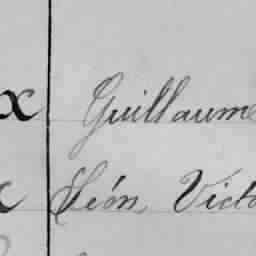 x Guillaume
x Léon Victo